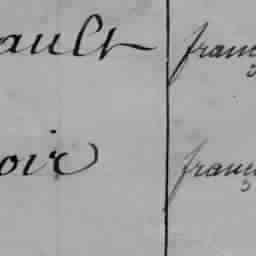 ault franç
oir franç